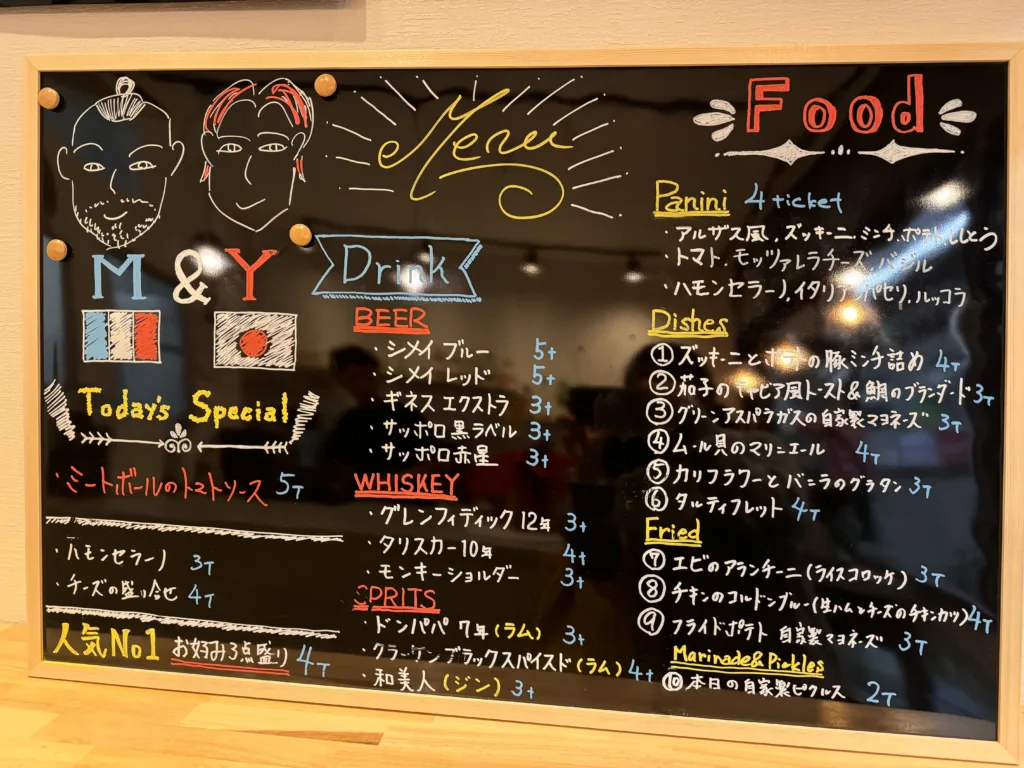 M & Y
Today's Special
・ミートボールのトマトソース 5T
・ハモンセラーノ 3T
・チーズの盛り合せ 4T
人気No1 お好み3点盛り 4T
Menu
Drink
BEER
・シメイ ブルー 5t
・シメイ レッド 5t
・ギネス エクストラ 3t
・サッポロ黒ラベル 3t
・サッポロ赤星 3t
WHISKEY
・グレンフィディック 12年 3t
・タリスカー10年 4t
・モンキーショルダー 3t
SPRITS
・ドンパパ 7年(ラム) 3t
・クラーケンブラックスパイスド(ラム) 4t
・和美人(ジン) 3t
Food
Panini 4 ticket
・アルザス風, ズッキーニ, ミンチ, ポテト, ししとう
・トマト, モッツァレラチーズ, バジル
・ハモンセラーノ, イタリアンパセリ, ルッコラ
Dishes
① ズッキーニとポテトの豚ミンチ詰め 4T
② 茄子のキャビア風トースト&鯛のブランダード 3T
③ グリーンアスパラガスの自家製マヨネーズ 3T
④ ムール貝のマリニエール 4T
⑤ カリフラワーとバニラのグラタン 3T
⑥ タルティフレット 4T
Fried
⑦ エビのアランチーニ(ライスコロッケ) 3T
⑧ チキンのコルドンブルー(生ハムとチーズのチキンカツ) 4T
⑨ フライドポテト 自家製マヨネーズ 3T
Marinade & Pickles
⑩ 本日の自家製ピクルス 2T